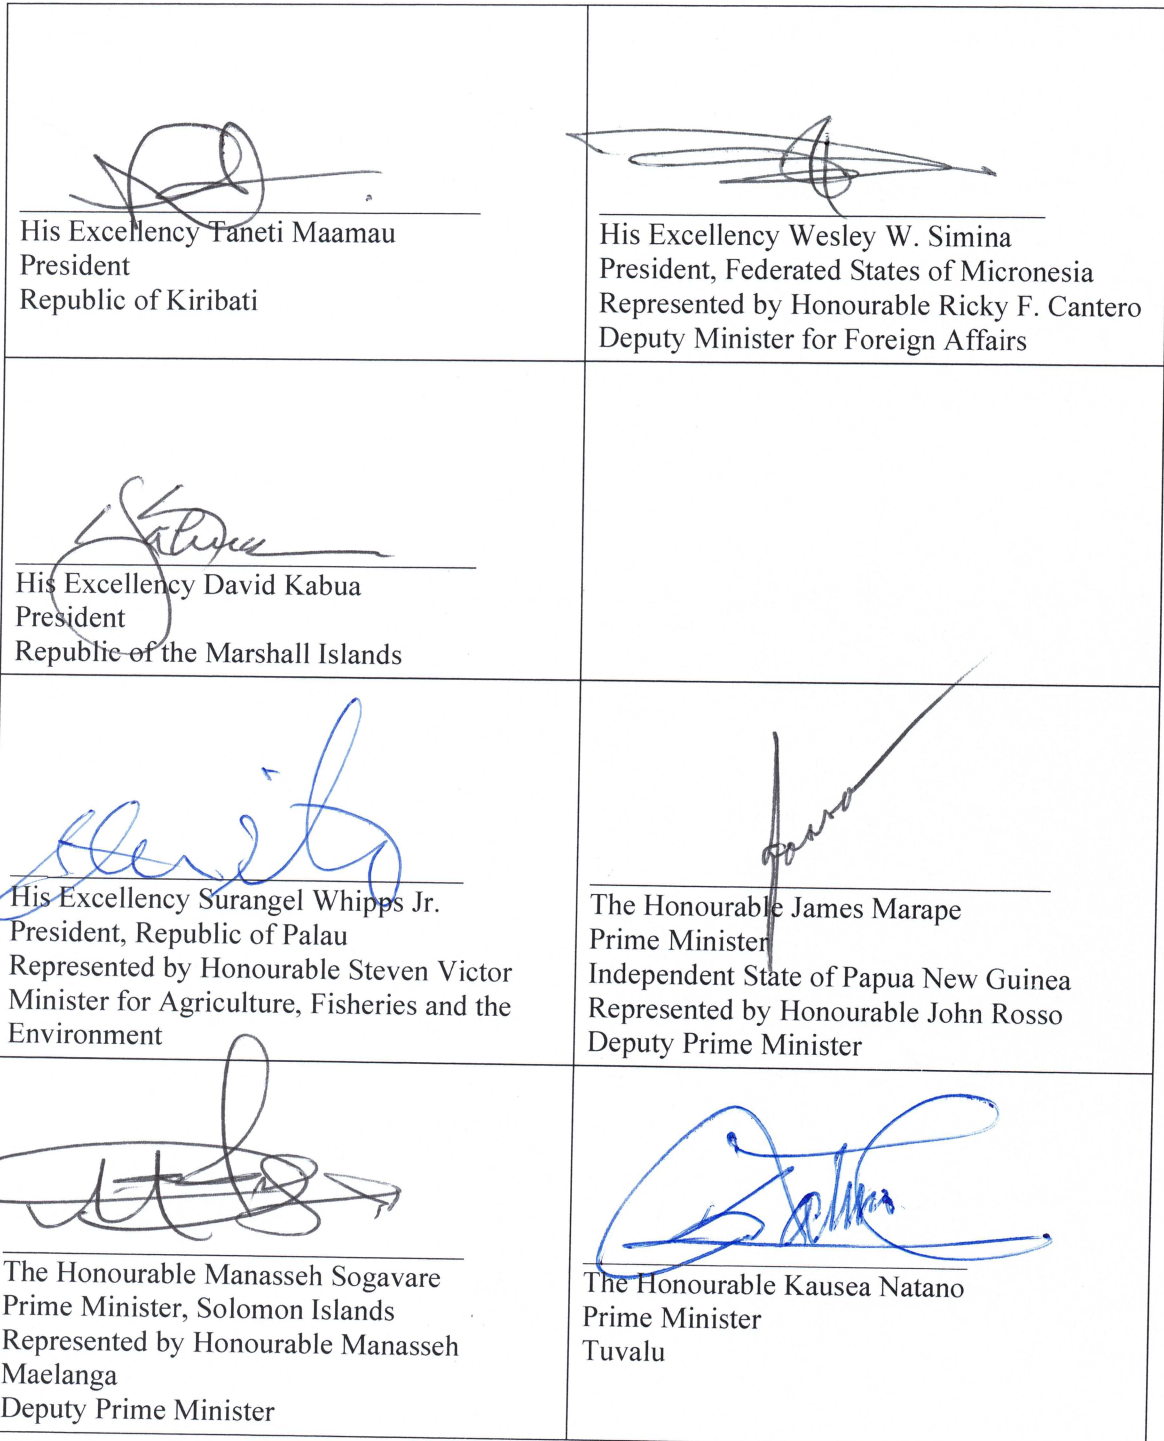 His Excellency Taneti Maamau
President
Republic of Kiribati
His Excellency Wesley W. Simina
President, Federated States of Micronesia
Represented by Honourable Ricky F. Cantero
Deputy Minister for Foreign Affairs
His Excellency David Kabua
President
Republic of the Marshall Islands
His Excellency Surangel Whipps Jr.
President, Republic of Palau
Represented by Honourable Steven Victor
Minister for Agriculture, Fisheries and the
Environment
The Honourable James Marape
Prime Minister
Independent State of Papua New Guinea
Represented by Honourable John Rosso
Deputy Prime Minister
The Honourable Manasseh Sogavare
Prime Minister, Solomon Islands
Represented by Honourable Manasseh
Maelanga
Deputy Prime Minister
The Honourable Kausea Natano
Prime Minister
Tuvalu